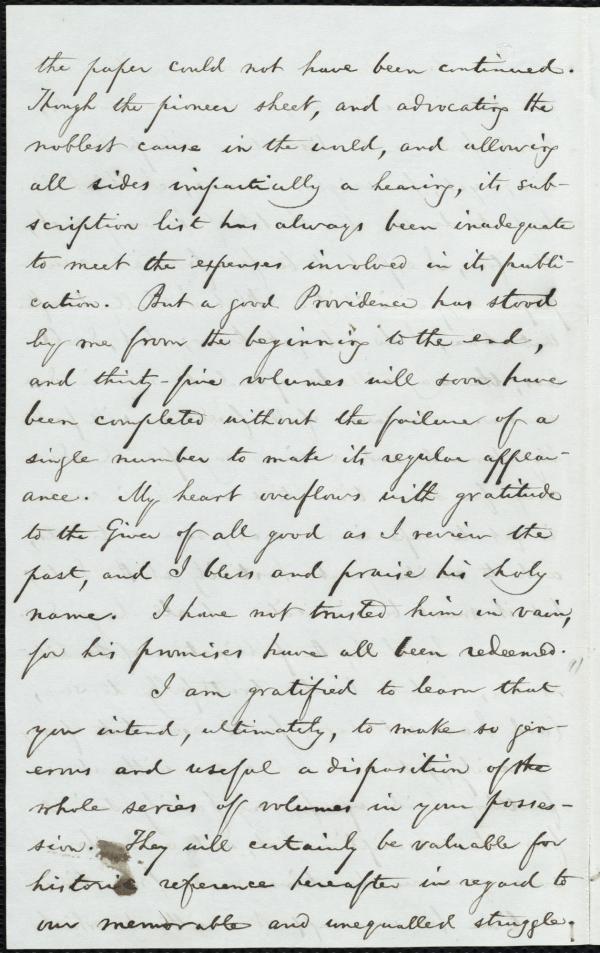 the paper could not have been continued.
Though the pioneer sheet, and advocating the
noblest cause in the world, and allowing
all sides impartially a hearing, its sub-
scription list has always been inadequate
to meet the expenses involved in its publi-
cation. But a good Providence has stood
by me from the beginning to the end,
and thirty-five volumes will soon have
been completed without the failure of a
single number to make its regular appear-
ance. My heart overflows with gratitude
to the Giver of all good as I review the
past, and I bless and praise his holy
name. I have not trusted him in vain,
for his promises have all been redeemed.
I am gratified to learn that
you intend, ultimately, to make so gen-
erous and useful a disposition of the
whole series of volumes in your posses-
sion. They will certainly be valuable for
historic reference hereafter in regard to
our memorable and unequalled struggle.